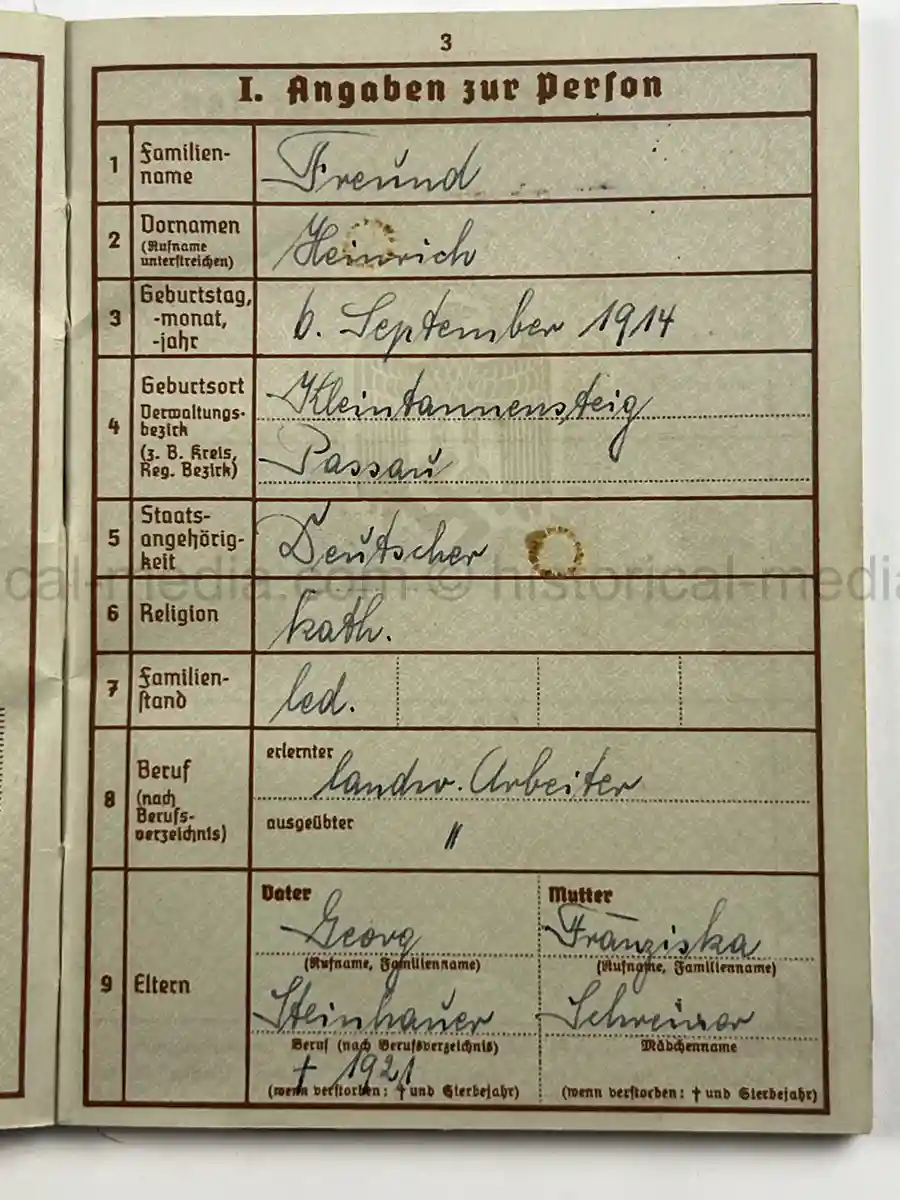 3
I. Angaben zur Person
1 Familien-
name
Freund
2 Vornamen
(Rufname
unterstreichen)
Heinrich
3 Geburtstag,
-monat,
-jahr
6. September 1914
4 Geburtsort
Verwaltungs-
bezirk
(z. B. Kreis,
Reg. Bezirk)
Kleintannensteig
Passau
5 Staats-
angehörig-
keit
Deutscher
cal-media.com © historical-media
6 Religion
kath.
7 Familien-
stand
led.
8 Beruf
(nach
Berufs-
verzeichnis)
erlernter
landw. Arbeiter
ausgeübter
"
9 Eltern
Vater
Georg
(Rufname, Familienname)
Steinhauer
Beruf (nach Berufsverzeichnis)
† 1921
(wenn verstorben: † und Sterbejahr)
Mutter
Franziska
(Rufname, Familienname)
Mädchenname
(wenn verstorben: † und Sterbejahr)